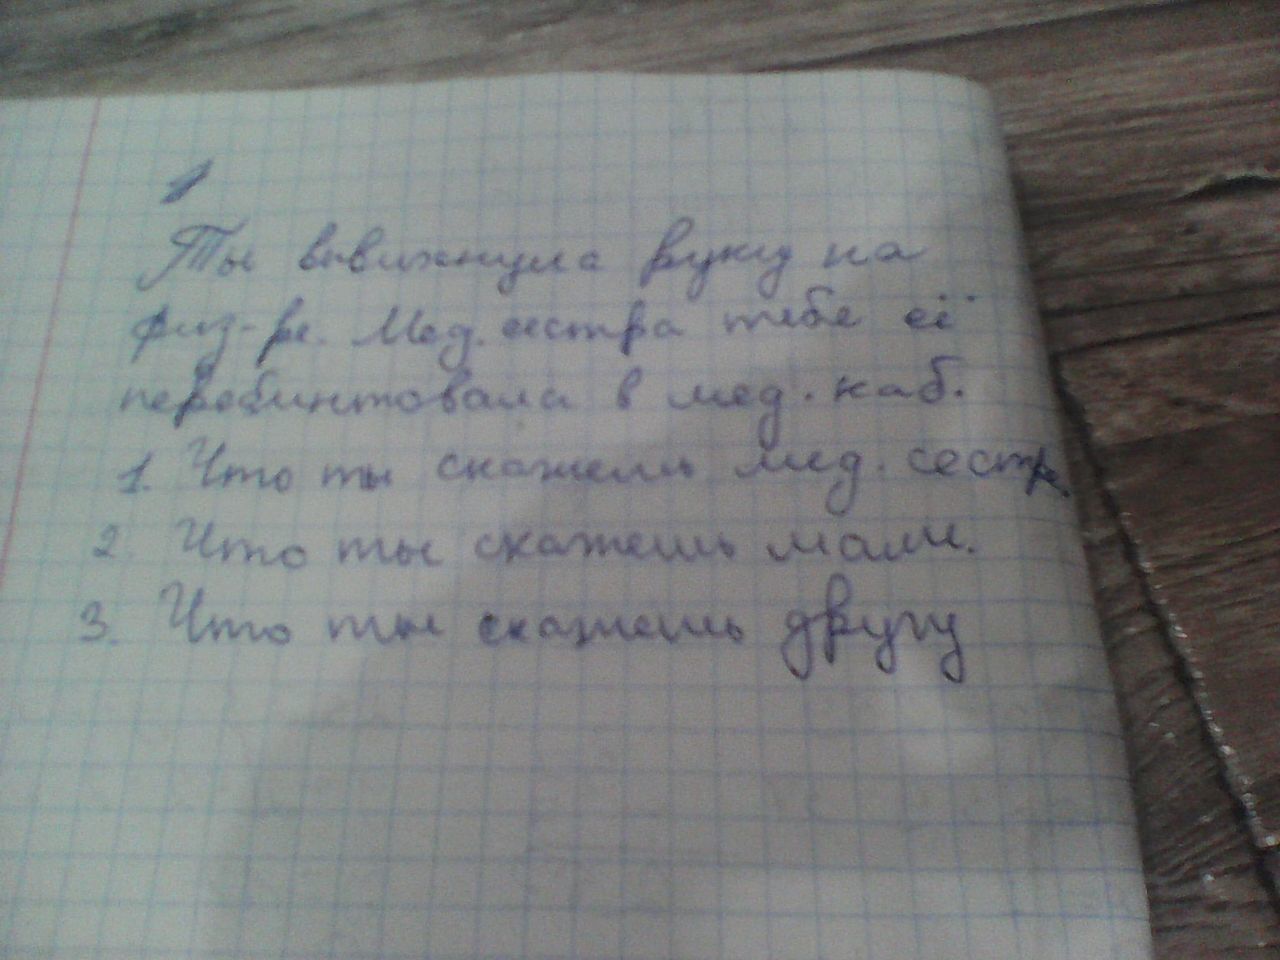 1
Ты вывихнула руку на
физ-ре. Мед. сестра тебе её
перебинтовала в мед. каб.
1. Что ты скажешь мед. сестре.
2. Что ты скажешь маме.
3. Что ты скажешь другу